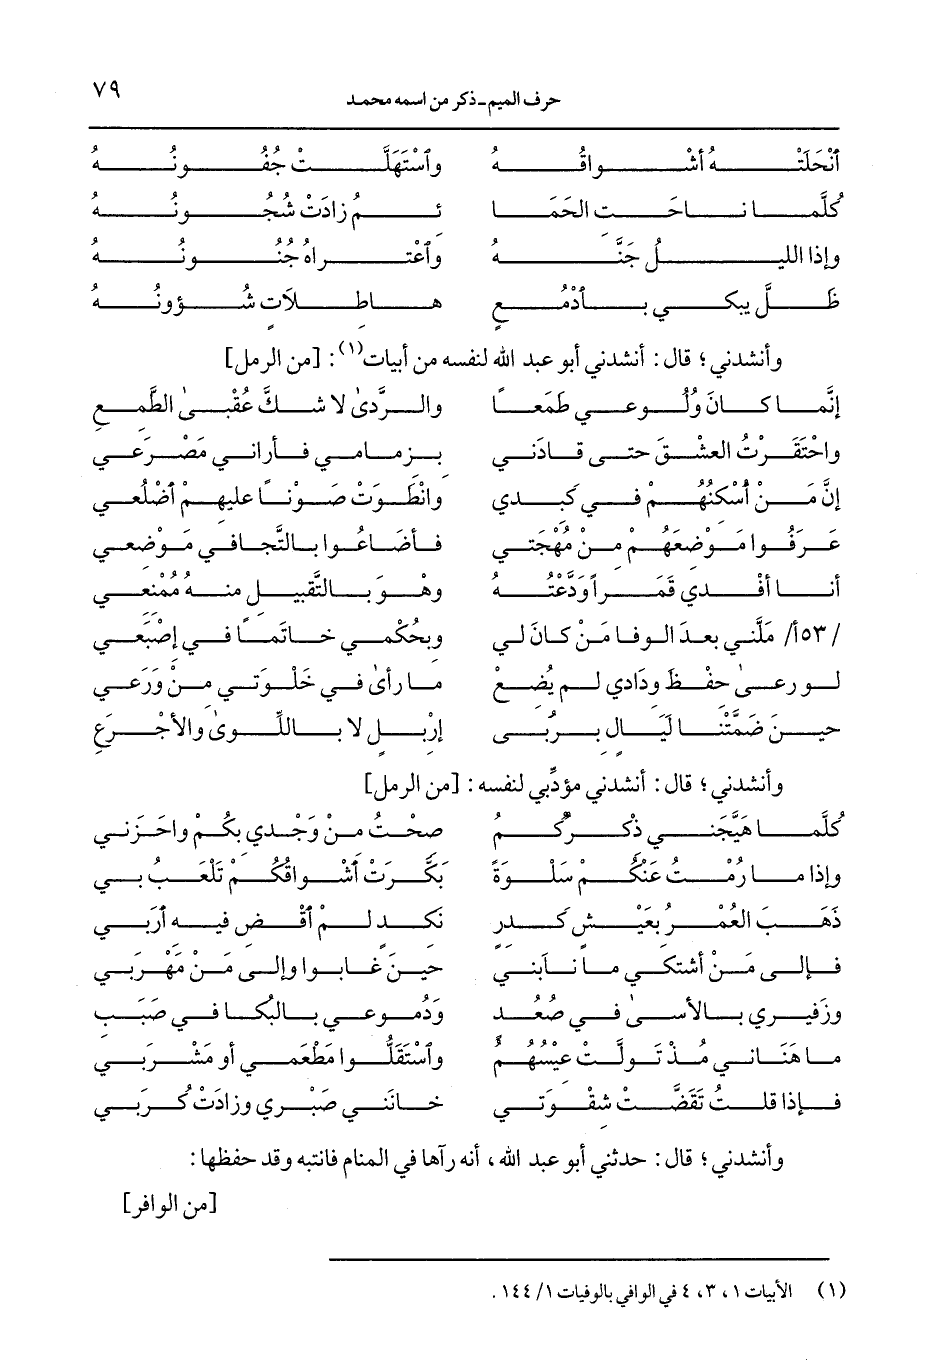 حرف الميم ـ ذكر من اسمه محمد ٧٩
أَنْحَلَتْهُ أَشْواقُهُ وٱسْتَهَلَّتْ جُفُونُهُ
كُلَّما ناحَتِ الحَمَا ئمُ زادَتْ شُجُونُهُ
وإذا الليلُ جَنَّهُ وٱعْتراهُ جُنُونُهُ
ظَلَّ يبكي بأَدْمُعٍ هاطِلاَتٍ شُؤونُهُ
وأنشدني؛ قال: أنشدني أبو عبد الله لنفسه من أبيات(١): [من الرمل]
إنَّما كانَ وُلُوعي طَمَعاً والرَّدىٰ لا شكَّ عُقْبىٰ الطَّمعِ
واحْتَقَرْتُ العشْقَ حتى قادَني بزمامي فأراني مَصْرَعي
إنَّ مَنْ أَسْكَنْتُهُمْ في كَبِدي وانْطَوَتْ صَوْناً عليهمْ أَضْلُعي
عَرَفُوا مَوْضعَهُمْ مِنْ مُهْجَتي فأَضَاعُوا بالتَّجافي مَوْضعي
أنا أَفْدي قَمَراً وَدَّعْتُهُ وهْوَ بالتَّقبيلِ منهُ مُمْتعي
/ ٥٣أ/ مَلَّني بعدَ الوفا مَنْ كانَ لي وبحُكْمي خاتَماً في إصْبَعي
لو رعىٰ حفْظَ ودَادي لم يُضعْ ما رأىٰ في خَلْوتي منْ وَرَعي
حينَ ضَمَّتْنا لَيَالٍ برُبى إرْبلٍ لا باللِّوىٰ والأَجْرَعِ
وأنشدني؛ قال: أنشدني مؤدِّبي لنفسه: [من الرمل]
كُلَّما هَيَّجَني ذكْرُكُمُ صحْتُ منْ وَجْدي بكُمْ واحَزَني
وإذا ما رُمْتُ عَنْكُمْ سَلْوَةً بَكَّرَتْ أَشْواقُكُمْ تَلْعَبُ بي
ذَهَبَ العُمْرُ بعَيْشٍ كَدرٍ نَكدٍ لمْ أَقْضِ فيهِ أَرَبي
فإلى مَنْ أشتكي ما نابَني حينَ غابوا وإلى مَنْ مَهْرَبي
وزَفيري بالأَسىٰ في صُعُدٍ ودُموعي بالبُكا في صَبَبِ
ما هَنَاني مُذْ تَولَّتْ عيْسُهُمْ وٱسْتَقَلُّوا مَطْعَمي أو مَشْرَبي
فإذا قلتُ تَقَضَّتْ شقْوَتي خانَني صَبْري وزادَتْ كُرَبي
وأنشدني؛ قال: حدثني أبو عبد الله، أنه رآها في المنام فانتبه وقد حفظها:
[من الوافر]
(١) الأبيات ١، ٣، ٤ في الوافي بالوفيات ١/ ١٤٤.